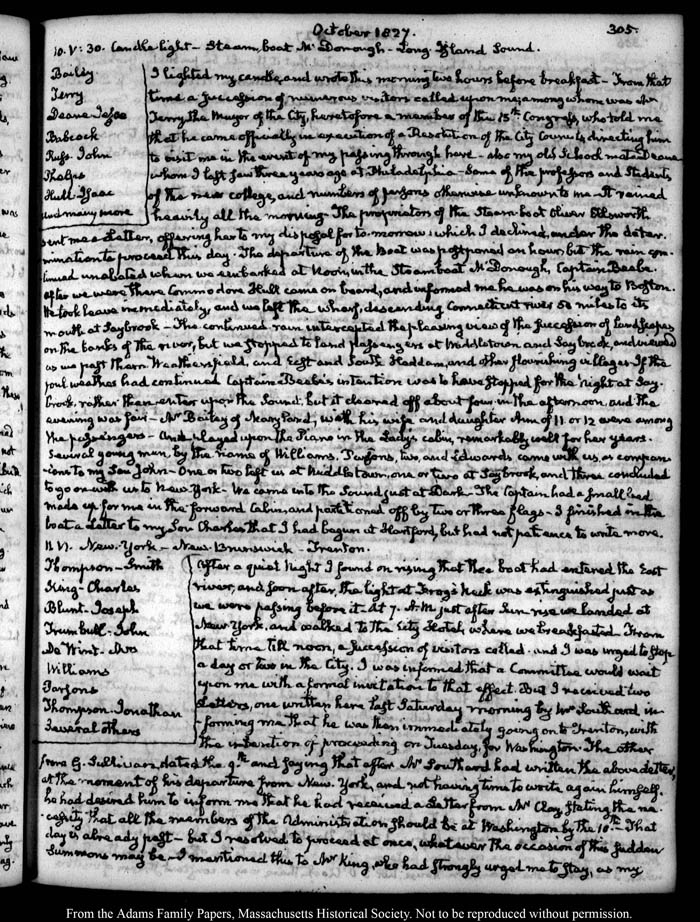 October 1827.
305.
10. V: 30. Candle light – Steam boat McDonough – Long Island Sound.
Bailey
Terry
Deane Jesse
Babcock
Russ. John
Phelps
Hull Isaac
and many more
I lighted my candle, and wrote this morning two hours before breakfast – From that
time a succession of numerous visitors called upon me; among whom was Mr
Terry the Mayor of the City, heretofore a member of the 15th Congress, who told me
that he came officially in execution of a Resolution of the City Council, directing him
to visit me in the event of my passing through here – also my old School mate Deane
whom I last saw three years ago at Philadelphia – Some of the professors and Students
of the new college, and numbers of persons otherwise unknown to me – It rained
heavily all the morning – The proprietors of the Steam-boat Oliver Ellsworth
sent me a Letter, offering her to my disposal for to-morrow; which I declined, under the deter-
mination to proceed this day. The departure of the Boat was postponed an hour, but the rain con-
tinued unabated when we embarked at Noon, in the Steamboat McDonough, Captain Beebe.
after we were there Commodore Hull came on board, and informed me he was on his way to Boston.
He took leave immediately, and we left the wharf, descending Connecticut river 50 miles to its
mouth at Saybrook – The continued rain intercepted the pleasing view of the succession of landscapes
on the banks of the river, but we stopped to land passengers at Middletown and Saybrook, and viewed
as we past them Weathersfield, and East and South Haddam, and other flourishing villages. If the
foul weather had continued Captain Beebe's intention was to have stopped for the night at Say-
brook, rather than enter upon the Sound, but it cleared off about four in the afternoon, and the
evening was fair – Mr Bailey of Maryland, with his wife and daughter Ann of 11 or 12 were among
the passengers – Ann played upon the Piano in the Lady's cabin, remarkably well for her years.
Several young men, by the name of Williams, Parsons, two, and Edwards came with us, as compan-
ions to my Son John – One or two left us at Middletown, one or two at Saybrook, and three concluded
to go on with us to New York – We came into the Sound just at Dark – The Captain had a small bed
made up for me in the forward Cabin, and partitioned off by two or three flags – I finished in the
boat a Letter to my Son Charles that I had begun at Hartford, but had not patience to write more.
11. VI. New-York – New-Brunswick – Trenton.
Thompson – Smith
King – Charles
Blunt. Joseph
Trumbull. John
De Wint. Mrs
Williams
Parsons
Thompson Jonathan
Several others
After a quiet Night I found on rising that the boat had entered the East
river, and soon after, the light at Frog's Neck was extinguished just as
we were passing before it. At 7. A.M. just after Sun rise we landed at
New York, and walked to the City Hotel, where we breakfasted. From
that time till noon, a succession of visitors called – and I was urged to stop
a day or two in the City. I was informed that a Committee would wait
upon me with a formal invitation to that effect. But I received two
Letters, one written here last Saturday morning by Mr Southard in-
forming me that he was then immediately going on to Trenton, with
the intention of proceeding on Tuesday, for Washington. The other
from G. Sullivan, dated the 9th and saying that after Mr Southard had written the above letter,
at the moment of his departure from New-York, and not having time to write again himself,
he had desired him to inform me that he had received a Letter from Mr Clay, stating the ne-
cessity that all the members of the Administration should be at Washington by the 10th – That
day is already past – but I resolved to proceed at once, whatever the occasion of this sudden
summons may be – I mentioned this to Mr King, who had strongly urged me to stay, as my
From the Adams Family Papers, Massachusetts Historical Society. Not to be reproduced without permission.